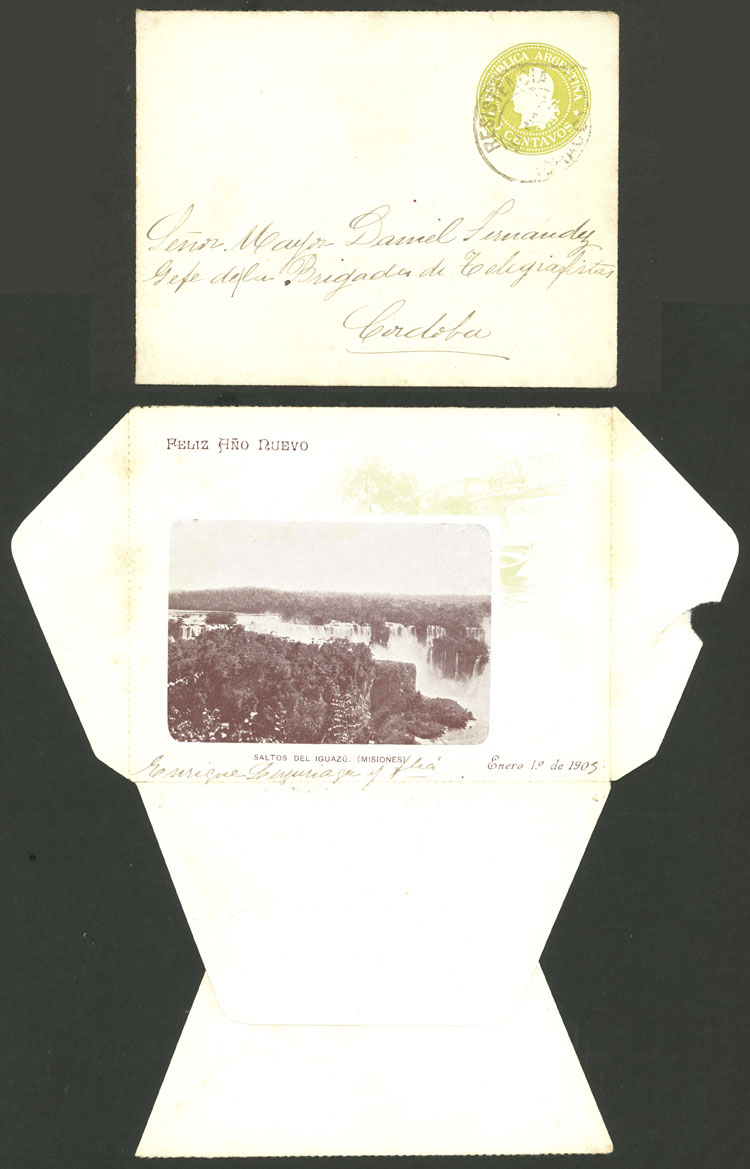 REPUBLICA ARGENTINA
CENTAVOS
RESISTENCIA
Señor Mayor Daniel Fernandez
Gefe de la Brigada de Telegrafistas
Cordoba
FELIZ AÑO NUEVO
SALTOS DEL IGUAZÚ. (MISIONES)
Enrique Luzuriaga y
Enero 1.º de 1905